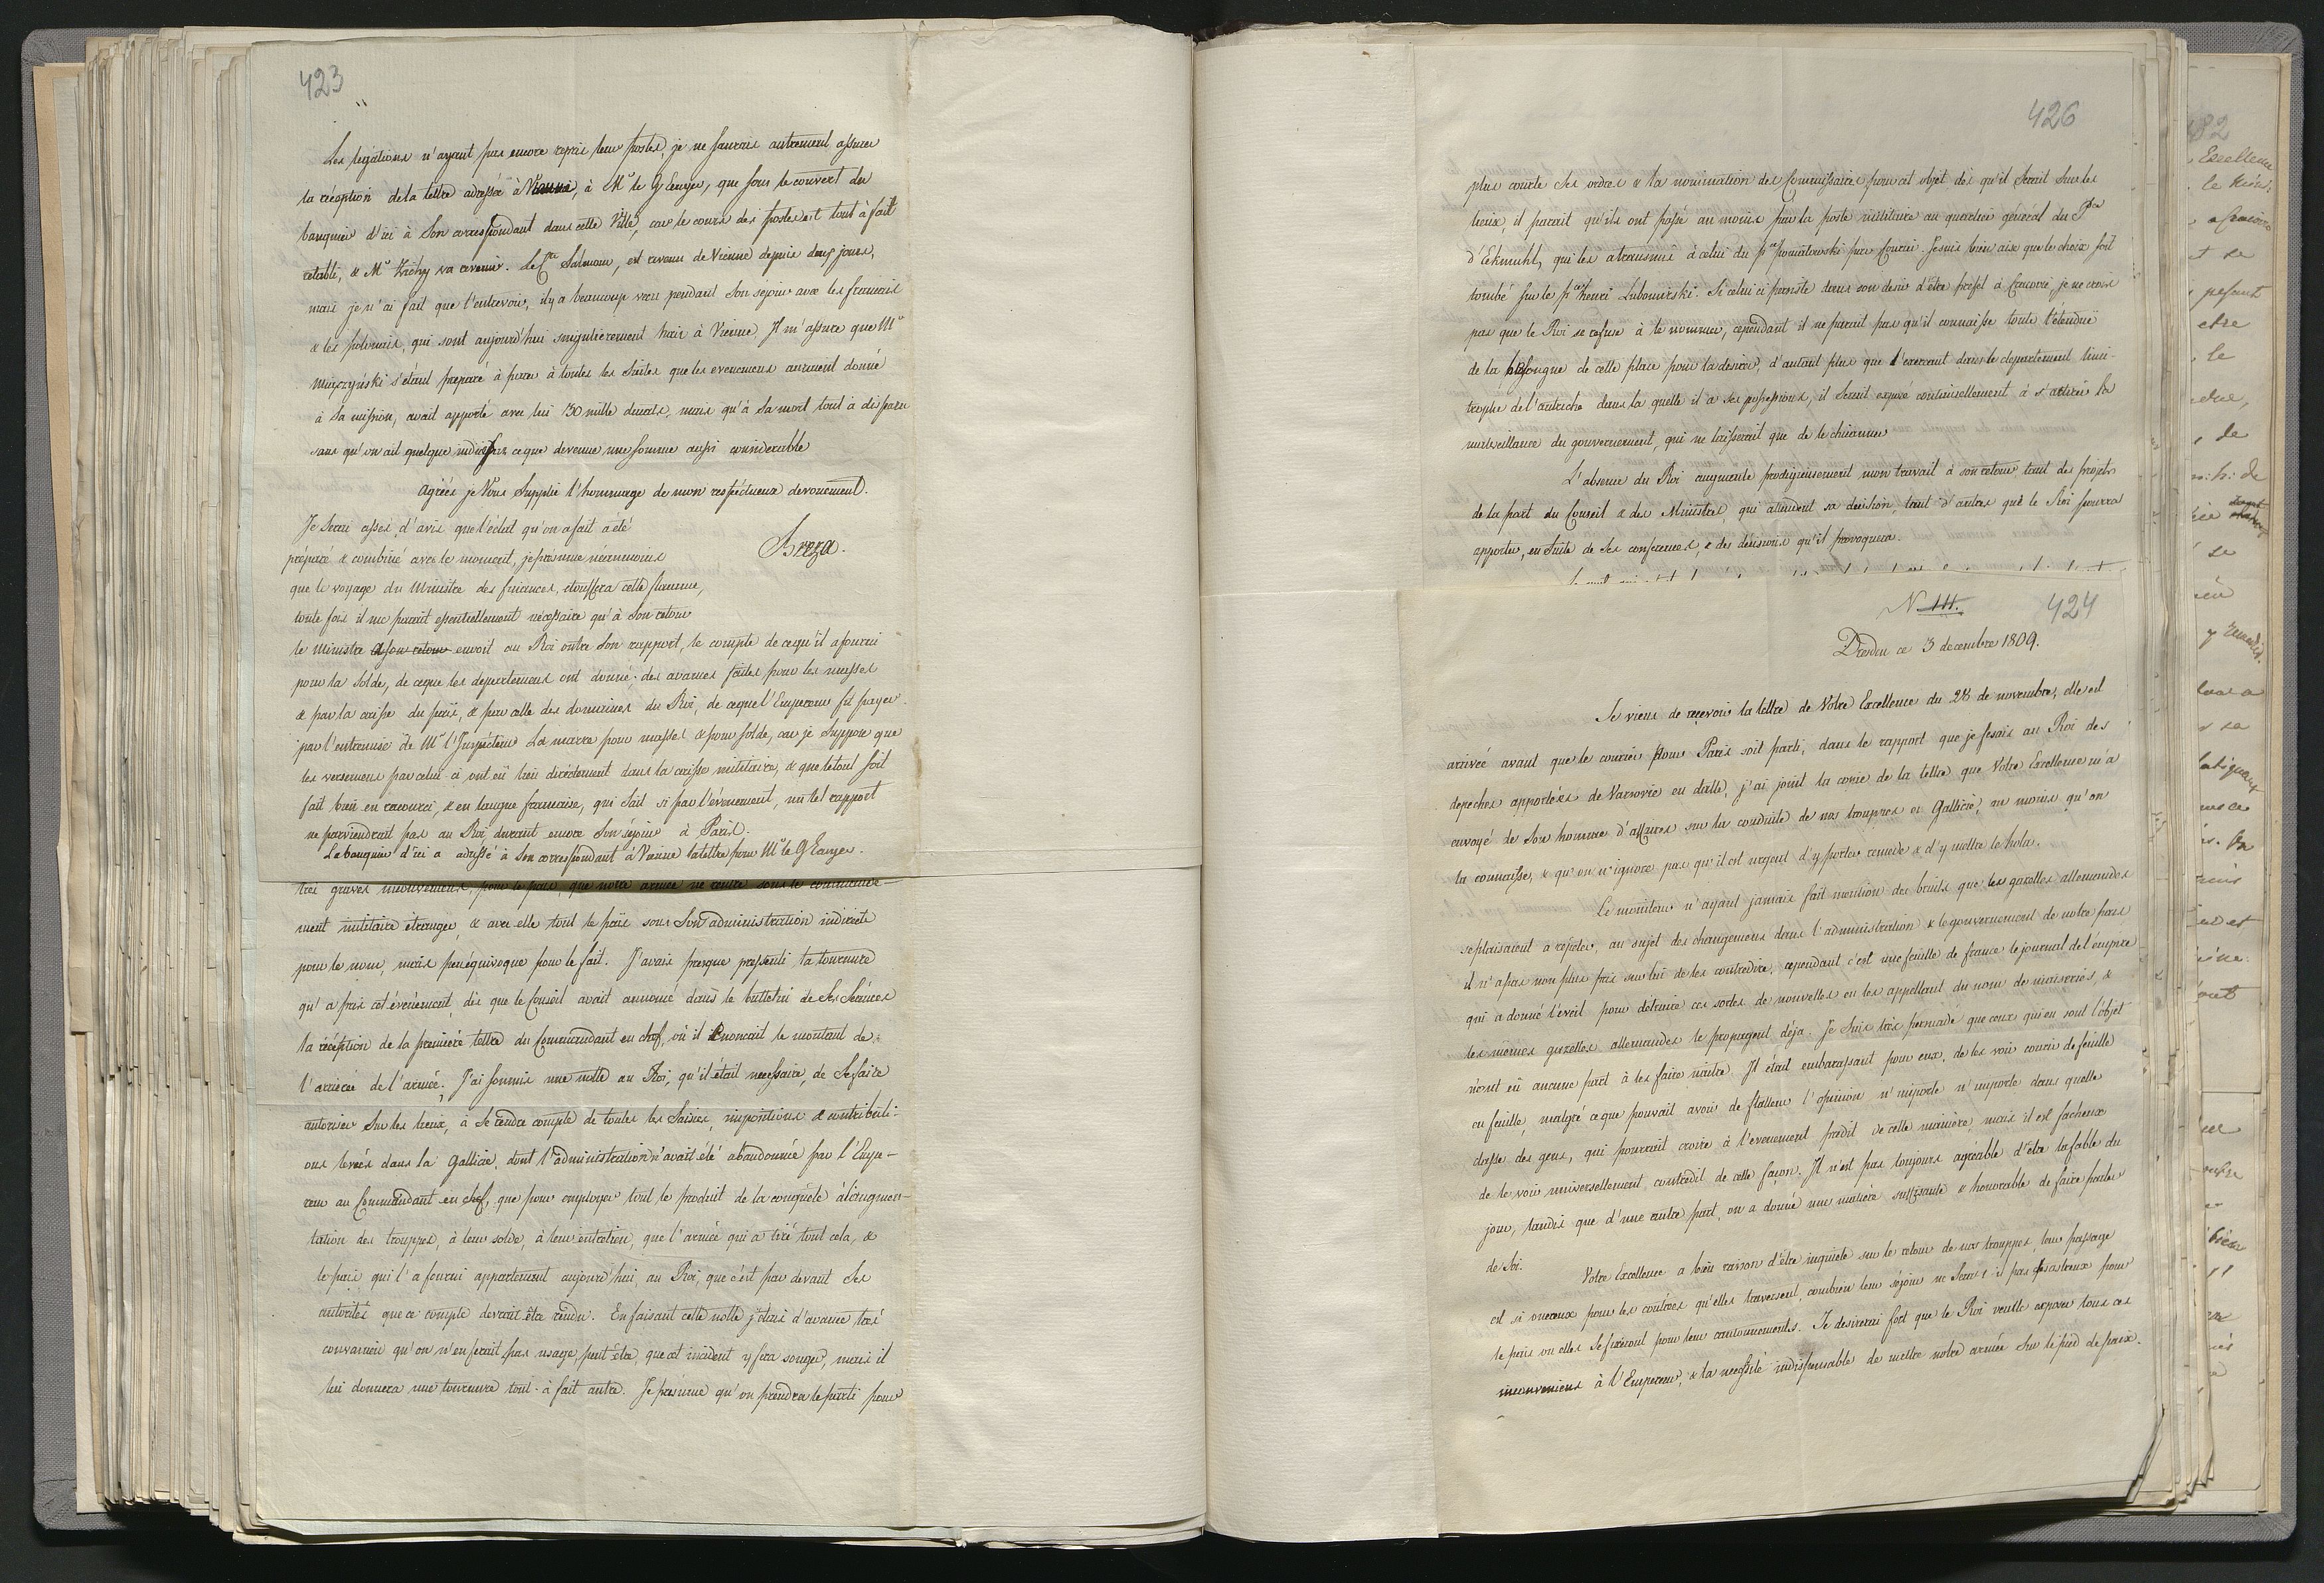 423
Les legations n'ayant pas encore repris leur postes, je ne saurais autrement assurer
la réception de la lettre adressée à Vienne, à Mr le G Eenyer, que sous le couvert du
banquier d'ici à Son correspondant dans cette Ville, car le cours des postes est tout à fait
retabli, & Mr Zichy va revenir. Le Cte Salmour, est revenu de Vienne depuis deux jours,
mais je n'ai fait que l'entrevoir, il y a beaucoup vecu pendant Son sejour avec les francais
& les polonais, qui sont aujourd'hui singulierement haïs à Vienne, Il m'assure que Mr
Miączyński s'étant preparé à parer à toutes les Suites que les evenemens auraient donné
à Sa mission, avait apporté avec lui 30 mille ducats, mais qu'à Sa mort tout a disparu
sans qu'on ait quelque indice sur ce que devenue une somme aussi considerable
Agréés je Vous Supplie l'hommage de mon respectueux devouement.
Breza.
Je Serai assès d'avis que l'éclat qu'on a fait a été
préparé & combiné avec le moment, je présume néanmoins
que le voyage du Ministre des finances, etouffera cette flamme,
toute fois il me parait essentiellement nécessaire qu'à Son retour
le Ministre à son retour envoit au Roi outre Son rapport, le compte de ce qu'il a fourni
pour la Solde, de ce que les departemens ont donné, des avances faites pour les masses
& par la caisse du païs, & par celle des domaines du Roi, de ce que l'Empereur fit payer
par l'entremise de Mr l'Inspecteur La marre pour masses & pour solde, car je Suppose que
les versemens par celui-ci ont eü lieu directement dans la caisse militaire, & que le tout soit
fait bien en racourci, & en langue francaise, qui Sait si par l'évenement, un tel rapport
ne parviendrait pas au Roi, durant encore Son séjour à Paris.
Le banquier d'ici a adressé à Son correspondant à Vienne la lettre pour Mr le G Eenyer.
très graves inconveniens, pour le païs, que notre armée ne rentre sous le commande-
ment militaire étranger, & avec elle tout le païs sous Son administration indirecte
pour le nom, mais peu équivoque pour le fait. J'avais presque pressenti la tournure
qu'a pris cet évenement, dès que le Conseil avait annoncé dans le bulletin de Ses Séances
la réception de la premiére lettre du Commandant en chef, où il énoncait le montant de
l'arrierée de l'armée. J'ai soumis une notte au Roi, qu'il était necessaire, de Se faire
autoriser Sur les lieux, à Se rendre compte de toutes les Saisies, impositions & contributi-
ons levées dans la Gallicie, dont l'administration n'avait été abandonnée par l'Empe-
reur au Commandant en chef, que pour employer tout le produit de la conquête à l'augmen-
tation des trouppes, à leur solde, à leur entretien, que l'armée qui a tiré tout cela, &
le païs qui l'a fourni appartenant aujourd'hui, au Roi, que c'est par devant Ses
autorités que ce compte devrait être rendu. En faisant cette notte j'étais d'avance très
convaincu qu'on n'en ferait pas usage, peut être, que cet incident y fera songer, mais il
lui donnera une tournure tout-à fait autre. Je présume qu'on prendra le parti pour
426
plus courte Ses ordres & la nomination des Commissaires pour cet objet dès qu'il Serait Sur les
lieux, il parait qu'ils ont passé au moins par la poste militaire au quartier général du Pce
d'Ekmuhl, qui les a transmis à celui du pce poniatowski par Courier. Je suis bien aise que le choix soit
tombé sur le pce Henri Lubomirski. Si celui ci persiste dans son desir d'être prefet à Cracovie, je ne crois
pas que le Roi se refuse à le nommer, cependant il ne parait pas qu'il connaisse toute l'étenduë
de la besongne de cette place pour la desirer, d'autant plus que l'exercant dans le departement limi-
trophe de l'autriche dans la quelle il a ses possessions, il Serait exposé continuellement à s'attirer la
malveillance du gouvernement, qui ne laisserait que de le chicanner
L'absence du Roi augmente prodigieusement mon travail à son retour tant de projets
de la part du Conseil & des Ministres, qui attendent sa décision, tant d'autres que le Roi pourra
apporter, en Suite de Ses conferences, & des décisions qu'il provoquera.
N III.
424
Dresden ce 3 decembre 1809.
Je viens de reçevoir la lettre de Votre Excellence du 28 de novembre, elle est
arrivée avant que le courier pour Paris soit parti, dans le rapport que je fesais au Roi des
depeches apportées de Varsovie en datte, j'ai joint la copie de la lettre que Votre Excellence m'a
envoyé de Son homme d'affaires sur la conduite de nos trouppes en Gallicie, au moins qu'on
la connaisse, & qu'on n'ignore pas qu'il est urgent d'y porter remede & d'y mettre le hola.
Le moniteur n'ayant jamais fait mention des bruits que les gazettes allemandes
se plaisaient à répéter, au sujet des changemens dans l'administration & le gouvernement de notre païs
il n'a pas non plus pris sur lui de les contredire, cependant c'est une feuille de france le journal de l'empire
qui a donné l'éveil pour détruire ces sortes de nouvelles en les appellant du nom de niaiseries, &
les mêmes gazettes allemandes le propagent déja. Je Suis très persuadé que ceux qui en sont l'objet
n'ont eü aucune part à les faire naitre. Il était embarassant pour eux, de les voir courir de feuille
en feuille, malgré ce que pouvait avoir de flatteur l'opinion n'importe n'importe dans quelle
classe des gens, qui pourrait croire à l'evenement predit de cette manière, mais il est facheux
de le voir universellement contredit de cette façon. Il n'est pas toujours agréable d'être la fable du
jour, tandis que d'une autre part, on a donné une matière suffisante & honorable de faire parler
de Soi.
Votre Excellence a bien raison d'être inquiete sur le retour de nos trouppes, leur passage
est si onereux pour les contrées qu'elles traversent, combien leur séjour ne Sera t-il pas desastreux pour
le païs ou elles Se fixeront pour leur cantonnements. Je desirerai fort que le Roi veuille exposer tous ces
inconveniens à l'Empereur, & la necessité indispensable de mettre notre armée Sur le pied de paix.